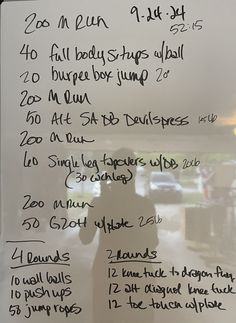 200 m Run
9-24-24
52:15
40 full body Situps w/ball
20 burpee box jump 20"
200 m Run
50 Alt SA DB Devilspress 15lb
200 m Run
60 Single leg tapovers w/DB 20lb
(30 each leg)
200 m Run
50 G2OH w/plate 25lb
4 Rounds
10 wall balls
10 push ups
50 jump ropes
2 Rounds
12 knee tuck to dragon flag
12 alt diagnol knee tuck
12 toe touch w/plate